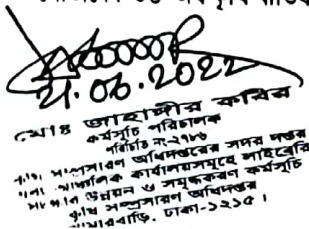 21.06.2022
মোঃ জাহাঙ্গীর কবির
কর্মসূচি পরিচালক
পরিচিতি নং-২৭৮৬
সম্প্রসারণ অধিদপ্তরের সদর দপ্তর
আঞ্চলিক কার্যালয়সমূহে লাইব্রেরি
উন্নয়ন ও সমৃদ্ধকরণ কর্মসূচি
কৃষি সম্প্রসারণ অধিদপ্তর
খামারবাড়ি, ঢাকা-১২১৫।